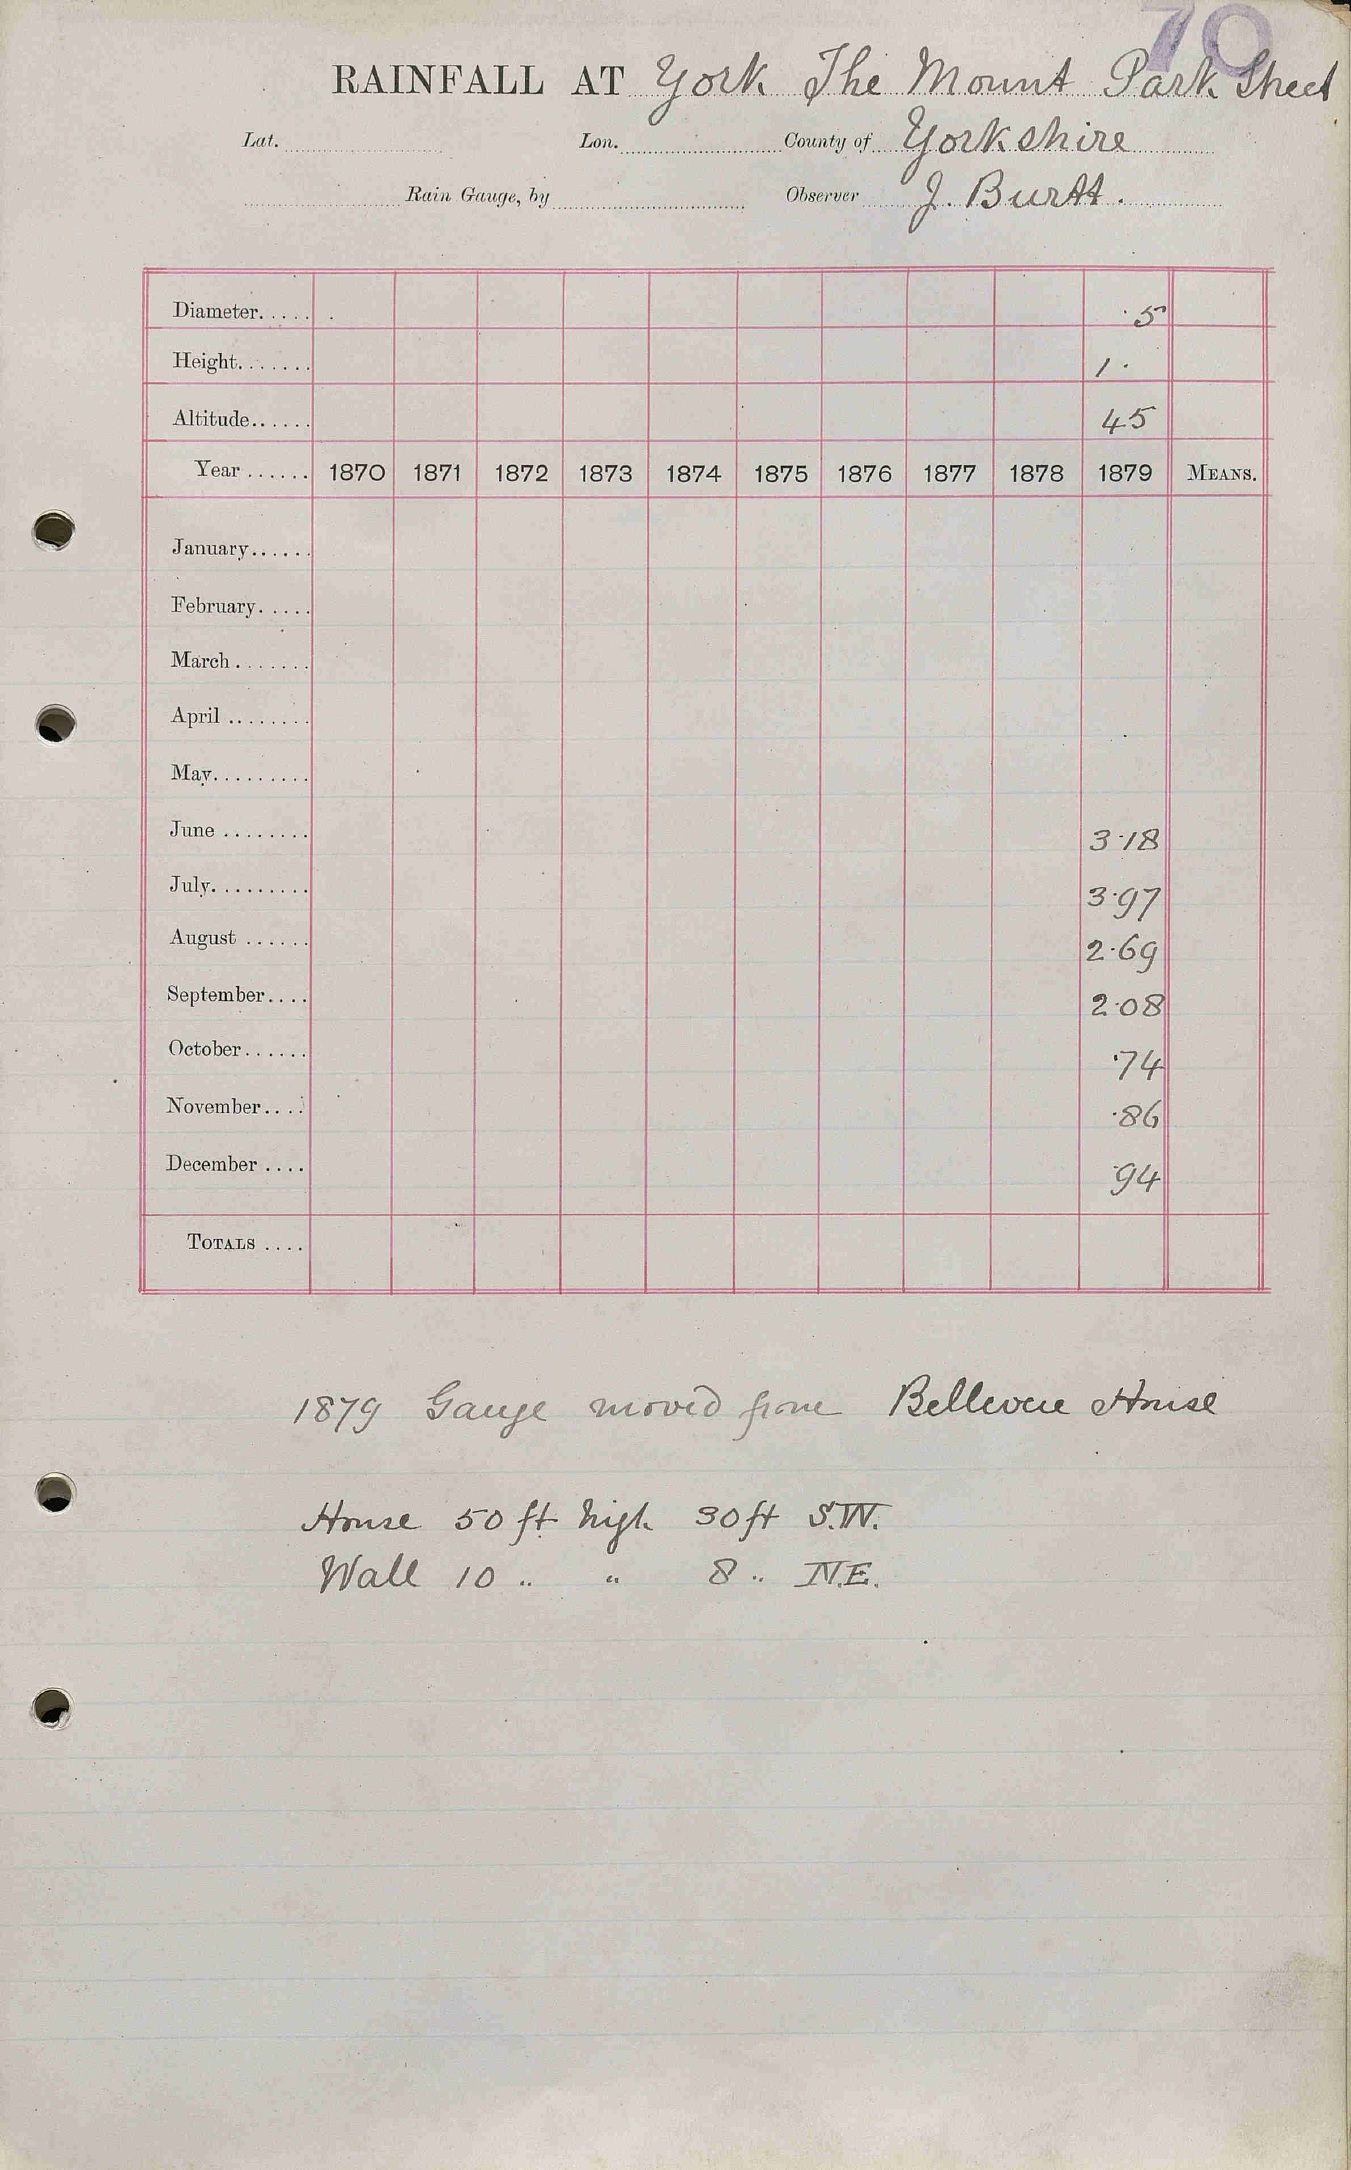 70
RAINFALL AT York The Mount Park Street
Lat. Lon. County of Yorkshire
Rain Gauge, by Observer J. Burtt.
Diameter..... ·5
Height....... 1·
Altitude...... 45
Year ...... 1870 1871 1872 1873 1874 1875 1876 1877 1878 1879 MEANS.
January......
February.....
March.......
April ........
May.........
June ........ 3·18
July......... 3·97
August ...... 2·69
September.... 2·08
October...... ·74
November.... ·86
December .... ·94
TOTALS ....
1879 Gauge moved from Bellevue House
House 50 ft high 30 ft S.W.
Wall 10 " " 8 " N.E.